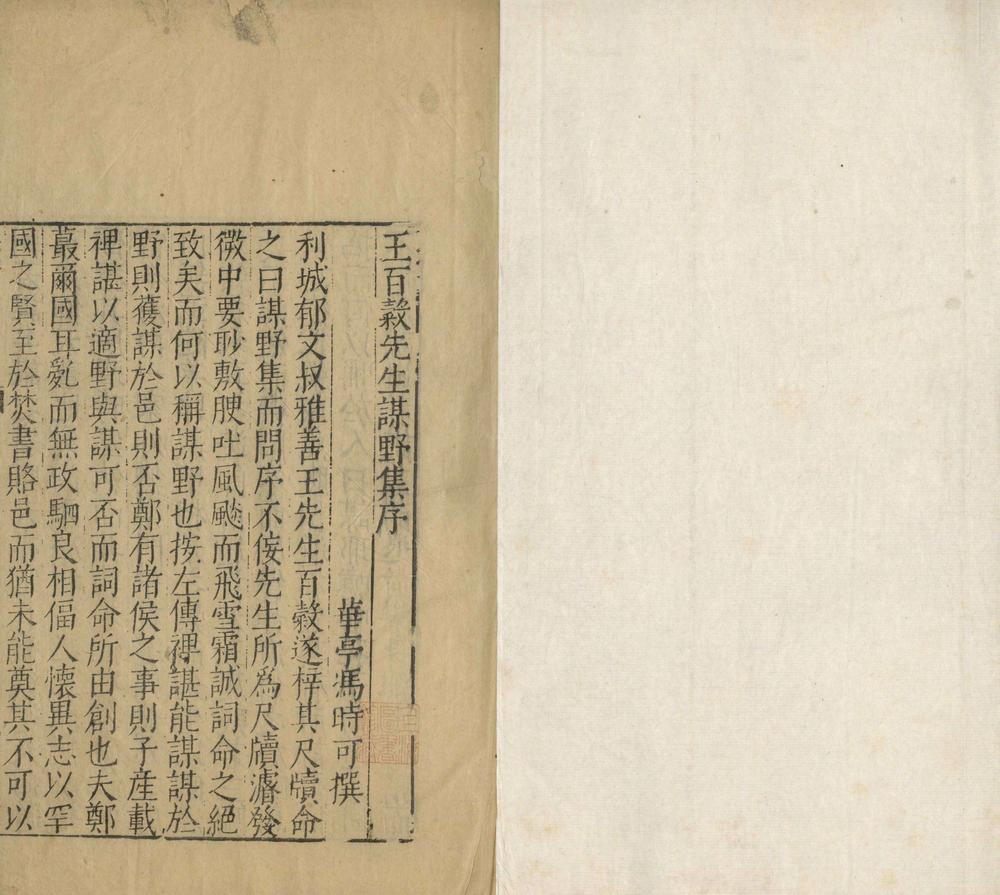 王百穀先生謀野集序
華亭馮時可撰
利城郁文叔雅善王先生百穀遂梓其尺牘命
之曰謀野集而問序不佞先生所爲尺牘濬發
微中要眇敷腴吐風飈而飛雪霜誠詞命之絕
致矣而何以稱謀野也按左傳裨諶能謀謀於
野則獲謀於邑則否鄭有諸侯之事則子產載
裨諶以適野與謀可否而詞命所由創也夫鄭
蕞爾國耳亂而無政駟良相偪人懷異志以罕
國之賢至於焚書賂邑而猶未能奠其不可以